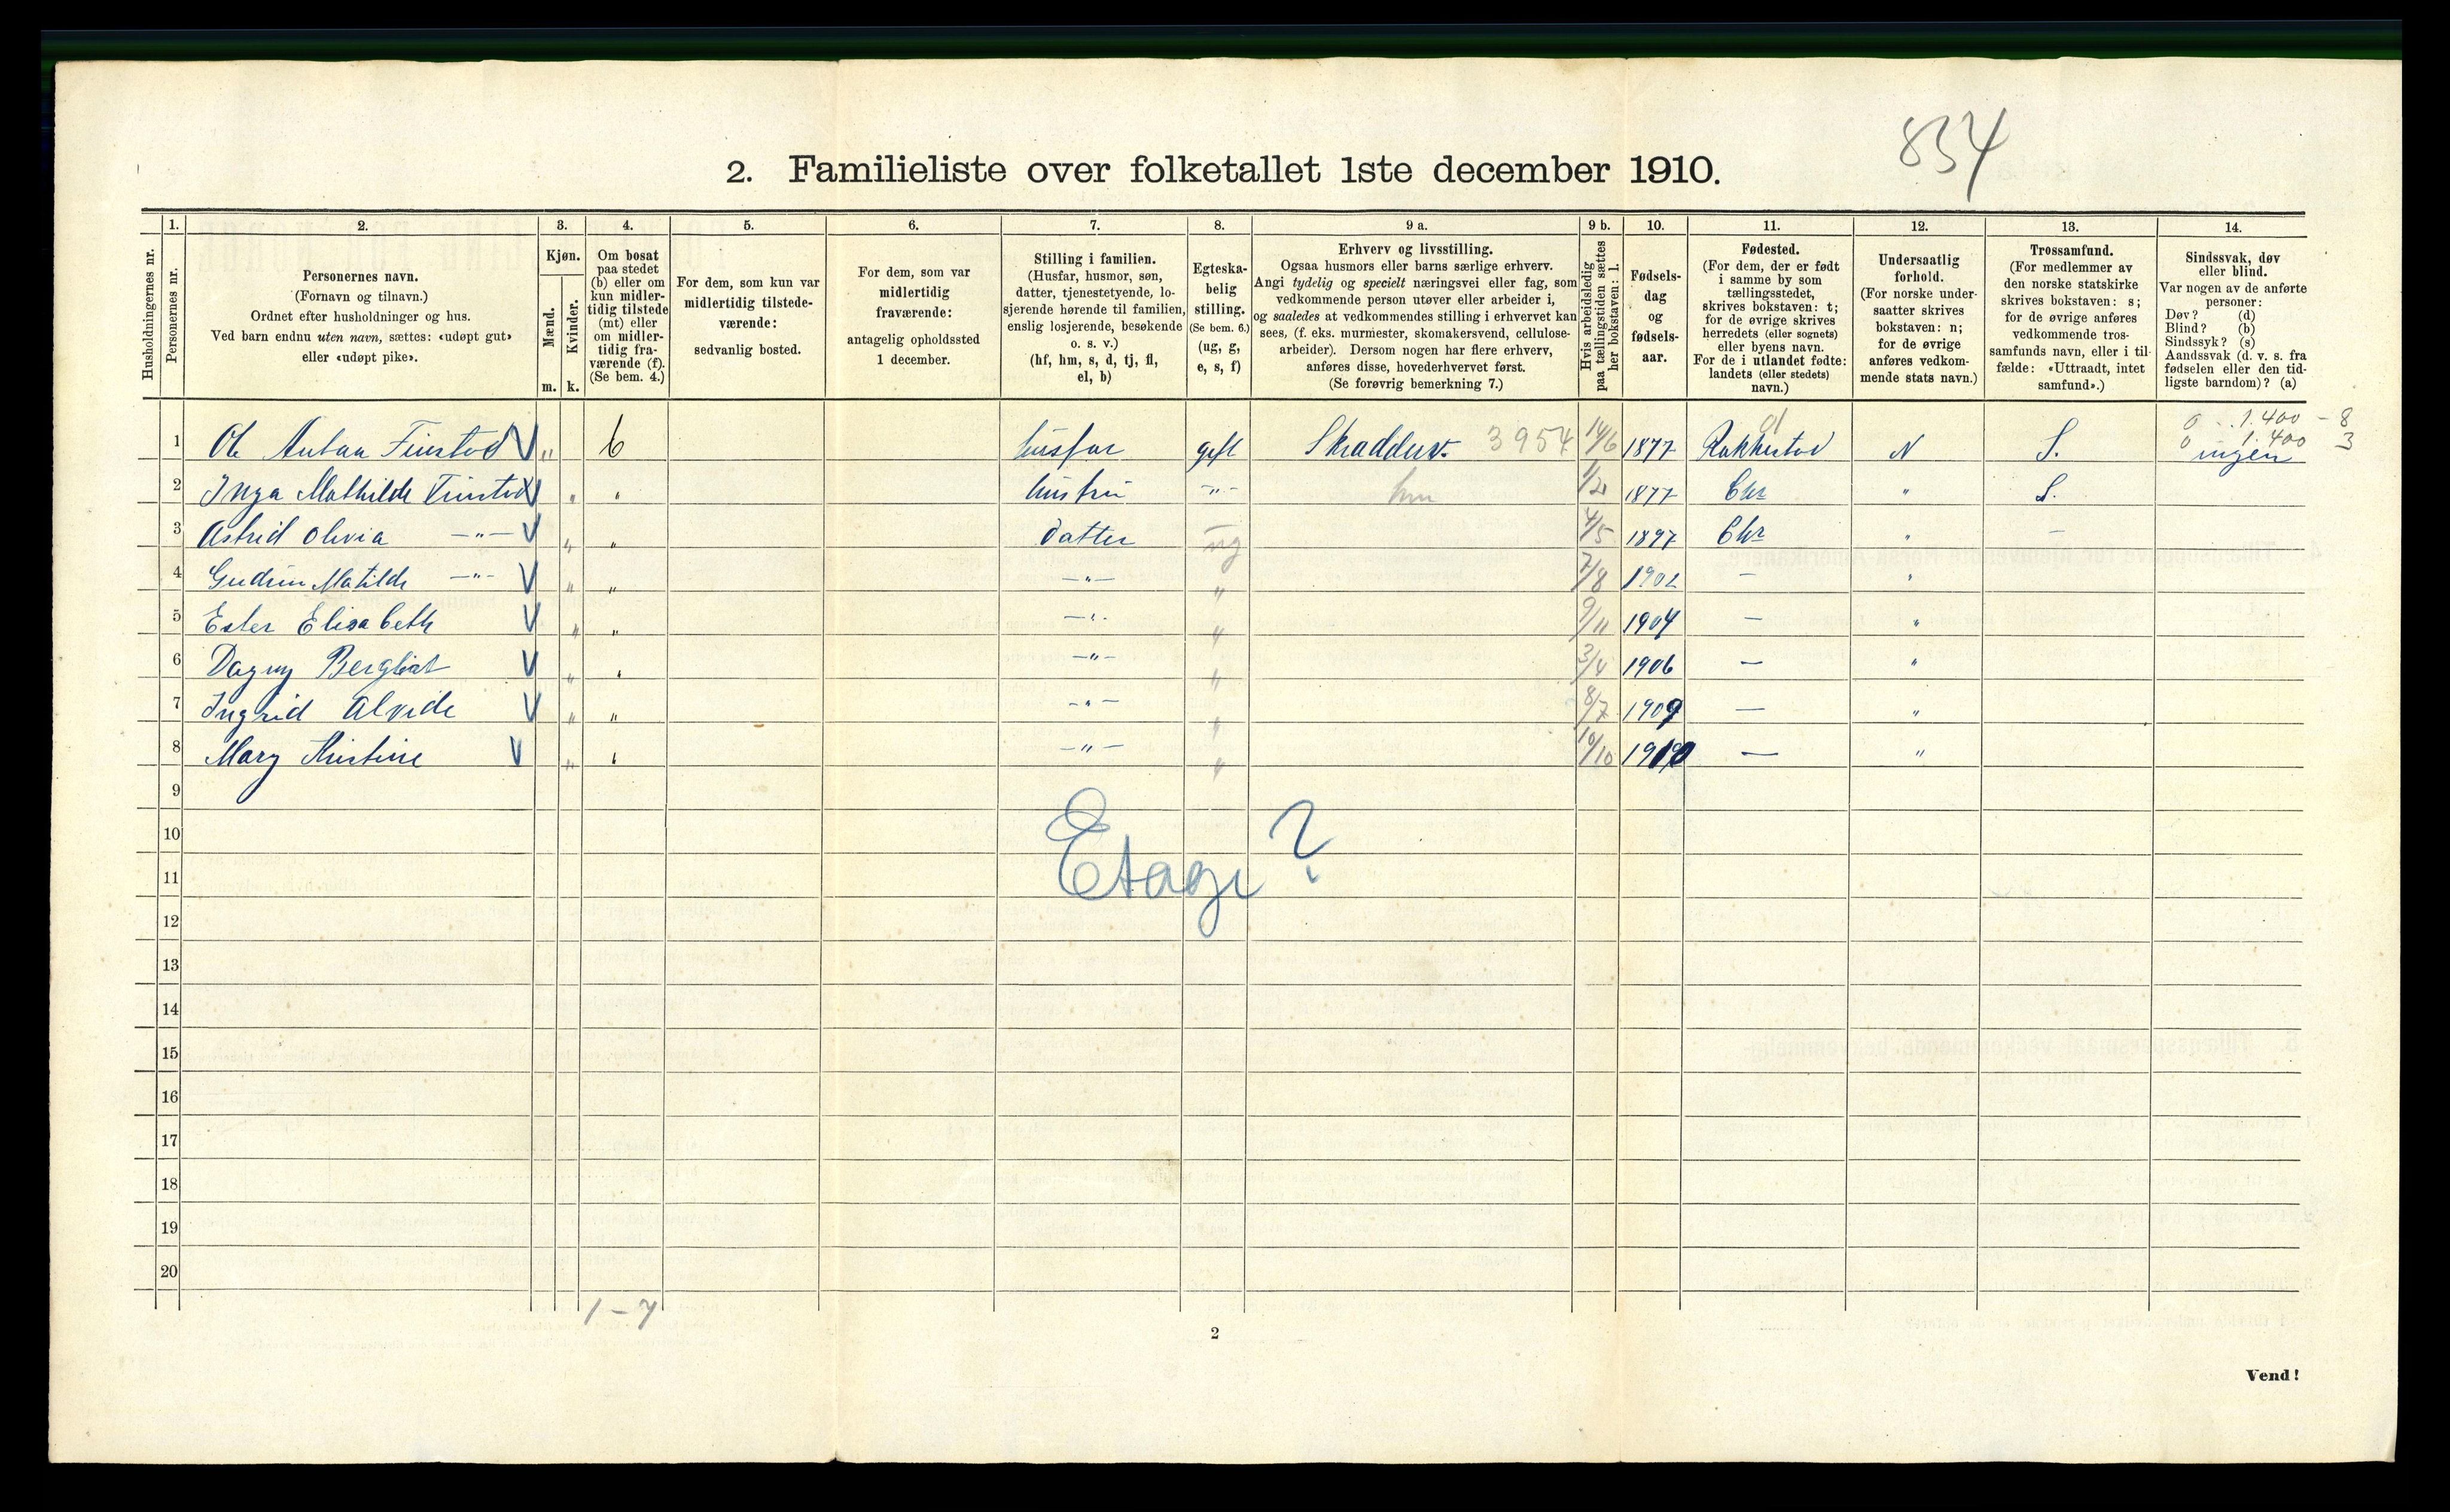 834
2. Familieliste over folketallet 1ste december 1910.
Husholdningernes nr.
1. Personernes nr.
2. Personernes navn. (Fornavn og tilnavn.) Ordnet efter husholdninger og hus. Ved barn endnu uten navn, sættes: «udøpt gut» eller «udøpt pike».
3. Kjøn. Mænd. m. Kvinder. k.
4. Om bosat paa stedet (b) eller om kun midlertidig tilstede (mt) eller om midlertidig fraværende (f). (Se bem. 4.)
5. For dem, som kun var midlertidig tilstedeværende: sedvanlig bosted.
6. For dem, som var midlertidig fraværende: antagelig opholdssted 1 december.
7. Stilling i familien. (Husfar, husmor, søn, datter, tjenestetyende, losjerende hørende til familien, enslig losjerende, besøkende o. s. v.) (hf, hm, s, d, tj, fl, el, b)
8. Egteskabelig stilling. (Se bem. 6.) (ug, g, e, s, f)
9 a. Erhverv og livsstilling. Ogsaa husmors eller barns særlige erhverv. Angi tydelig og specielt næringsvei eller fag, som vedkommende person utøver eller arbeider i, og saaledes at vedkommendes stilling i erhvervet kan sees, (f. eks. murmester, skomakersvend, cellulosearbeider). Dersom nogen har flere erhverv, anføres disse, hovederhvervet først. (Se forøvrig bemerkning 7.)
9 b. Hvis arbeidsledig paa tællingstiden sættes her bokstaven: l.
10. Fødselsdag og fødselsaar.
11. Fødested. (For dem, der er født i samme by som tællingsstedet, skrives bokstaven: t; for de øvrige skrives herredets (eller sognets) eller byens navn. For de i utlandet fødte: landets (eller stedets) navn.)
12. Undersaatlig forhold. (For norske undersaatter skrives bokstaven: n; for de øvrige anføres vedkommende stats navn.)
13. Trossamfund. (For medlemmer av den norske statskirke skrives bokstaven: s; for de øvrige anføres vedkommende trossamfunds navn, eller i tilfælde: «Uttraadt, intet samfund».)
14. Sindssvak, døv eller blind. Var nogen av de anførte personer: Døv? (d) Blind? (b) Sindssyk? (s) Aandssvak (d. v. s. fra fødselen eller den tidligste barndom)? (a)
0 1.400 - 8
0 1.400 3
1 Ole Anton Finstad V " b husfar gift Skradder 3954 14/6 1877 Rakkestad 01 N S. ingen
2 Inga Mathilde Finstad V " " hustru -"- hm 1/2 1877 Chr " S.
3 Astrid Olivia -"- V " " datter ug 4/5 1897 Chr " -
4 Gudrun Matilde -"- V " " -"- " 7/8 1902 - "
5 Ester Elisabeth V " " -"- " 9/11 1904 - "
6 Dagny Bergliot V " " -"- " 3/4 1906 - "
7 Ingrid Alvide V " " -"- " 8/7 1909 - "
8 Mary Kristine V " " -"- " 10/10 1910 - "
9
10
Etage?
11
12
13
14
15
16
17
18
19
20
1-7
2
Vend!